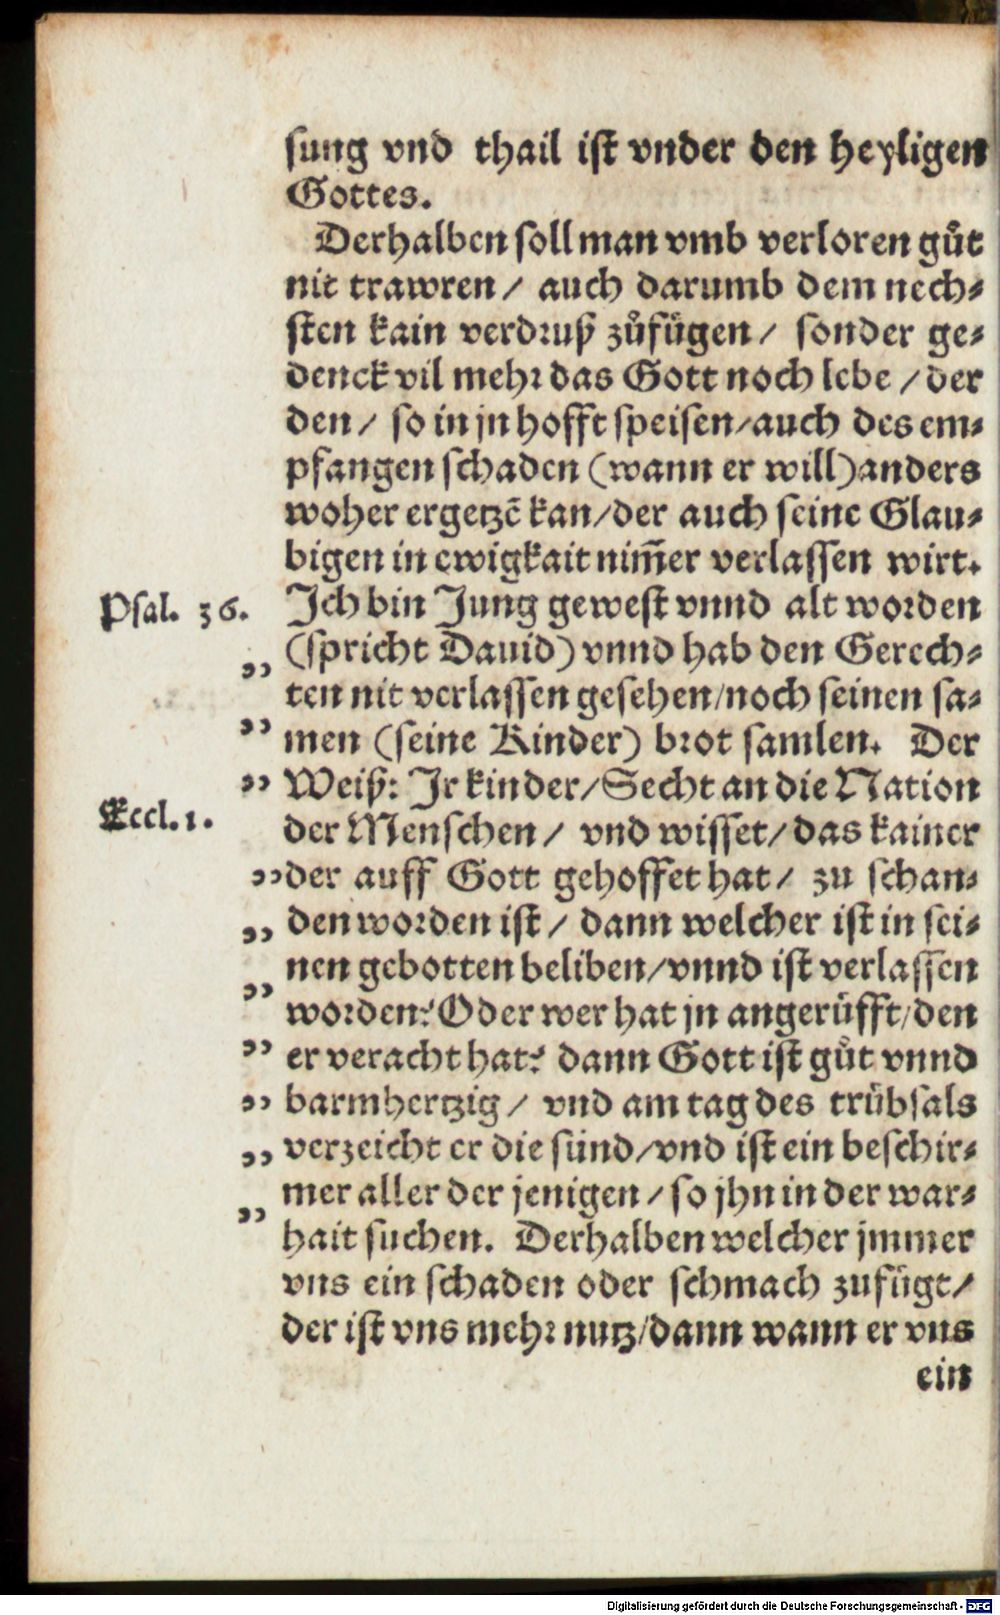 sung vnd thail ist vnder den heyligen
Gottes.
Derhalben soll man vmb verloren gůt
nit trawren / auch darumb dem nech⸗
sten kain verdruß zůfügen / sonder ge⸗
denck vil mehr das Gott noch lebe / der
den / so in jn hofft speisen / auch des em⸗
pfangen schaden (wann er will) anders
woher ergetzē kan / der auch seine Glau⸗
bigen in ewigkait nim̄er verlassen wirt.
Psal. 36. Ich bin Jung gewest vnnd alt worden
„ (spricht Dauid) vnnd hab den Gerech⸗
ten nit verlassen gesehen / noch seinen sa⸗
„ men (seine Kinder) brot samlen. Der
„ Weiß: Ir kinder / Secht an die Nation
Eccl. 1. der Menschen / vnd wisset / das kainer
„ der auff Gott gehoffet hat / zu schan⸗
„ den worden ist / dann welcher ist in sei⸗
„ nen gebotten beliben / vnnd ist verlassen
worden? Oder wer hat jn angerüfft / den
„ er veracht hat? dann Gott ist gůt vnnd
„ barmhertzig / vnd am tag des trübsals
„ verzeicht er die sünd / vnd ist ein beschir⸗
„ mer aller der jenigen / so jhn in der war⸗
hait suchen. Derhalben welcher jmmer
vns ein schaden oder schmach zufügt /
der ist vns mehr nutz / dann wann er vns
ein
Digitalisierung gefördert durch die Deutsche Forschungsgemeinschaft - DFG